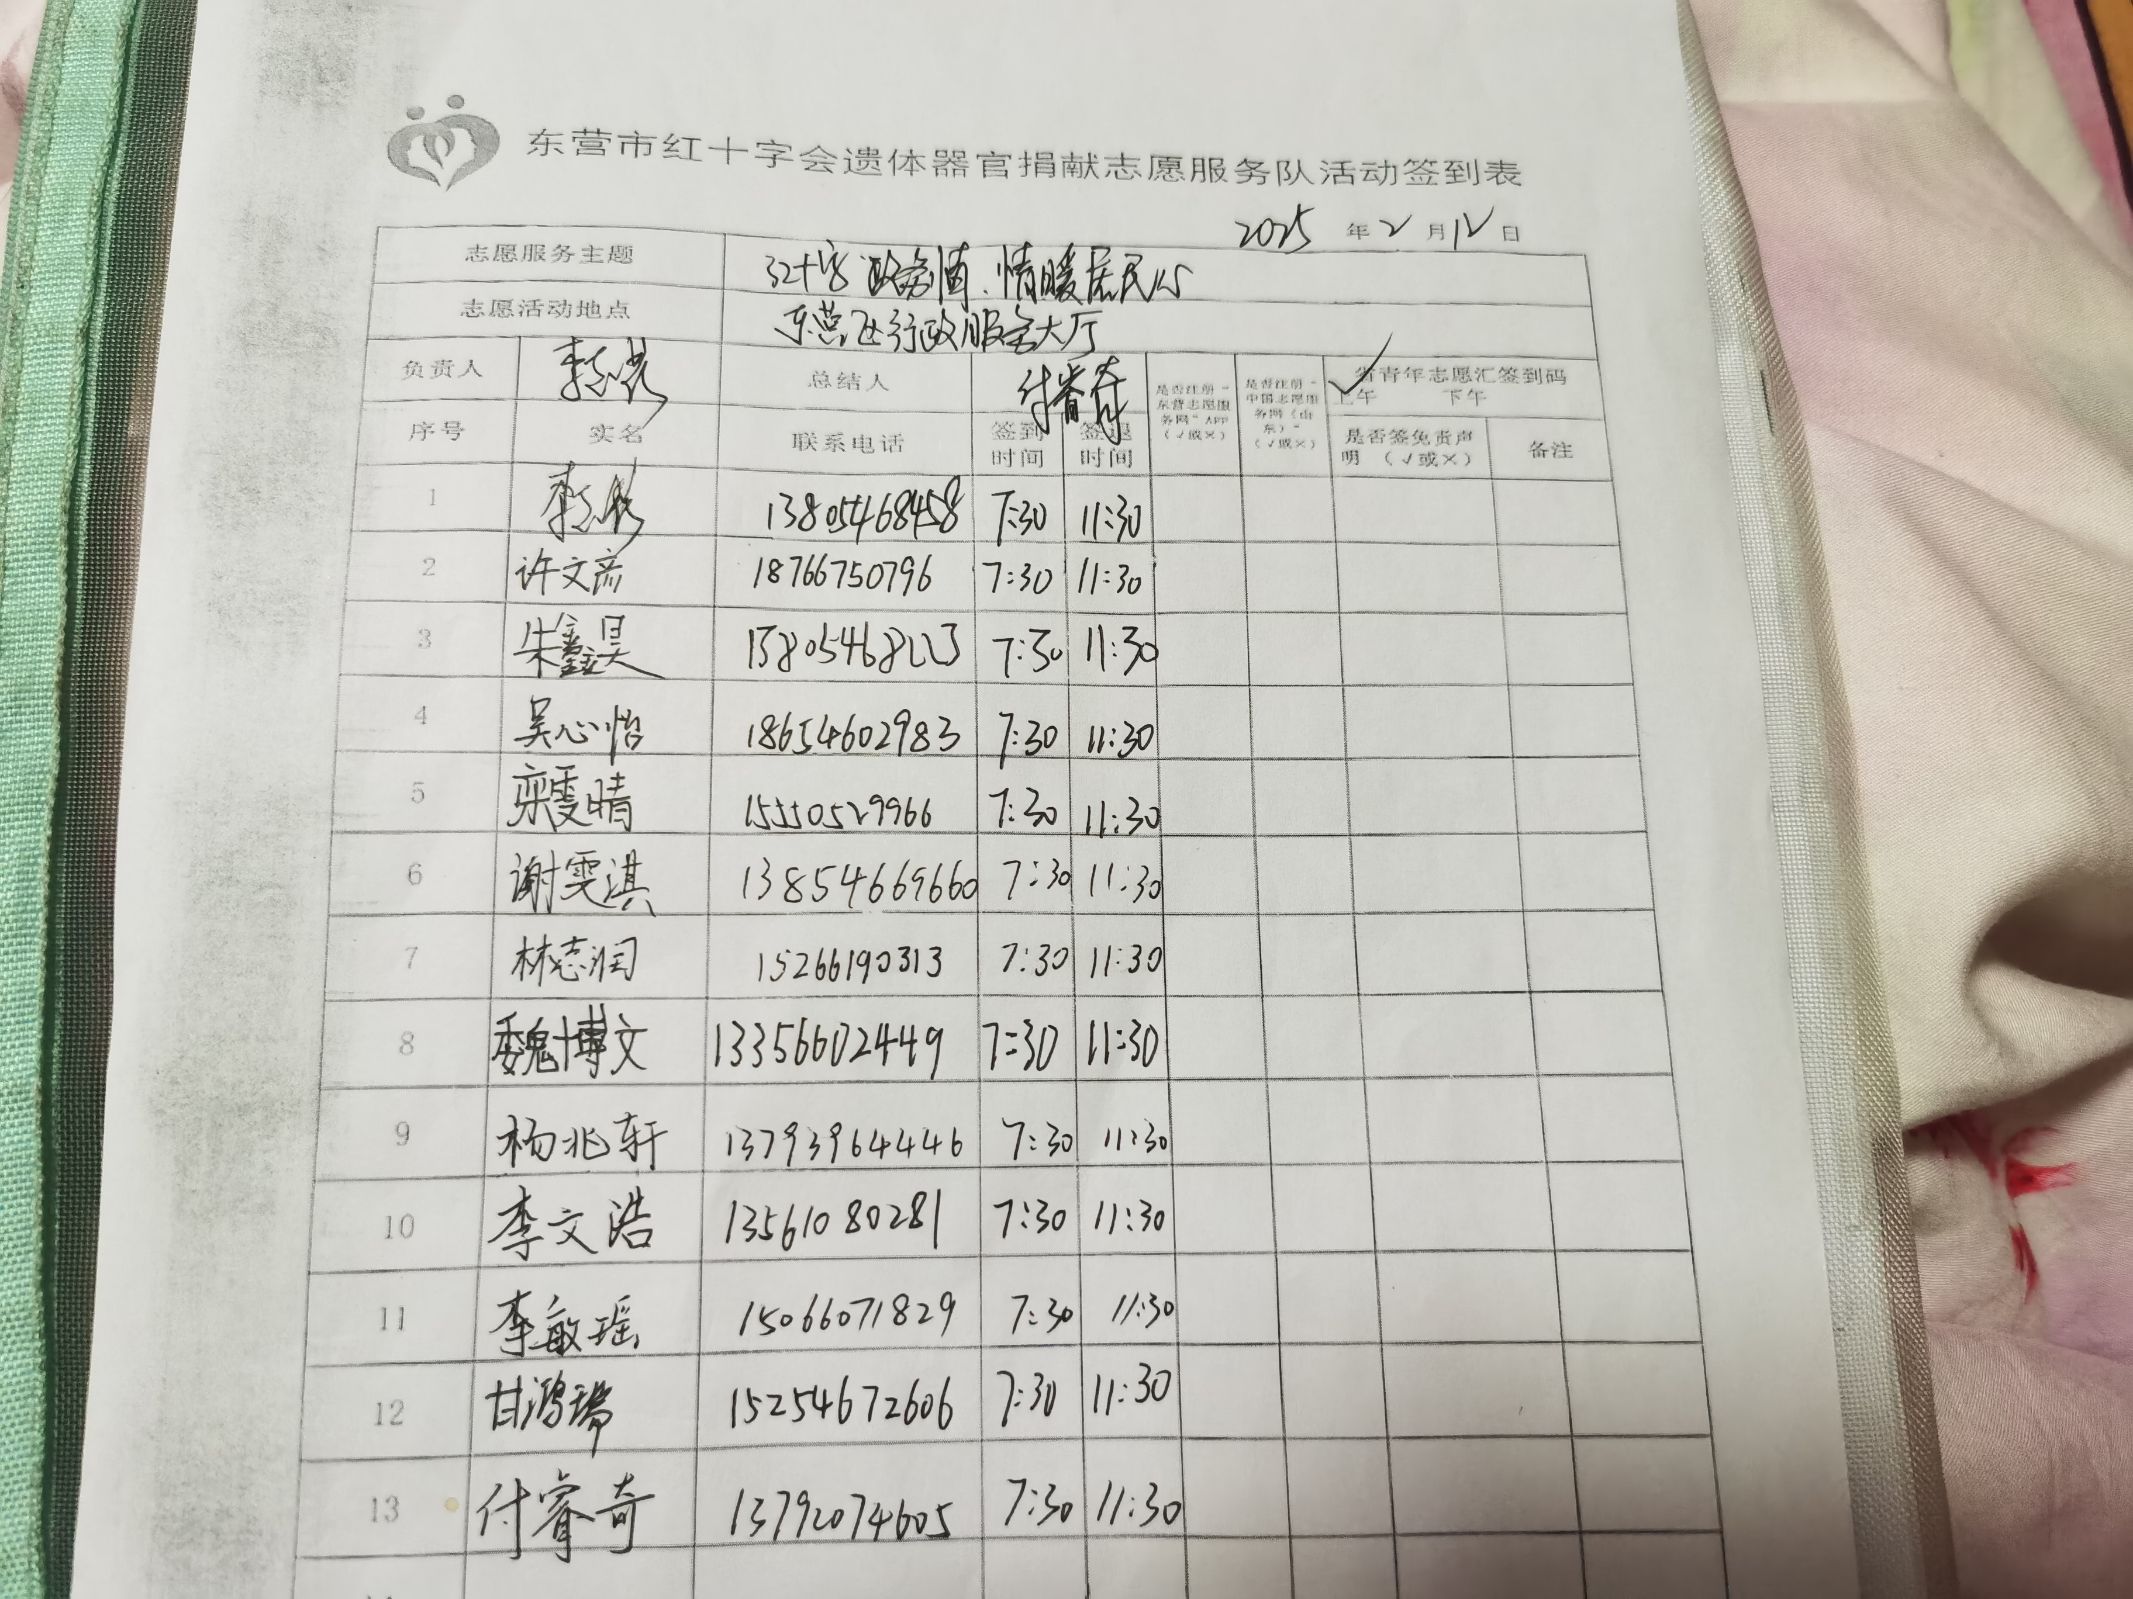 东营市红十字会遗体器官捐献志愿服务队活动签到表
2025 年 2 月 12 日
志愿服务主题 红十字 政务情、情暖居民心
志愿活动地点 东营区行政服务大厅
负责人 总结人 付睿奇 是否注册“东营志愿服务网”APP（√或×） 是否注册“中国志愿服务网（山东）”（√或×） 省青年志愿汇签到码
✓上午 下午
序号 实名 联系电话 签到时间 签退时间 是否签免责声明 （√或×） 备注
1 13805468458 7:30 11:30
2 许文彦 18766750796 7:30 11:30
3 朱鑫昊 13805468223 7:30 11:30
4 吴心怡 18654602983 7:30 11:30
5 栾雯晴 15550529966 7:30 11:30
6 谢雯淇 13854669660 7:30 11:30
7 林志润 15266190313 7:30 11:30
8 魏博文 13356602449 7:30 11:30
9 杨兆轩 13793964446 7:30 11:30
10 李文浩 13561080281 7:30 11:30
11 李敏瑶 15066071829 7:30 11:30
12 甘鸿瑞 15254672606 7:30 11:30
13 付睿奇 13792074605 7:30 11:30